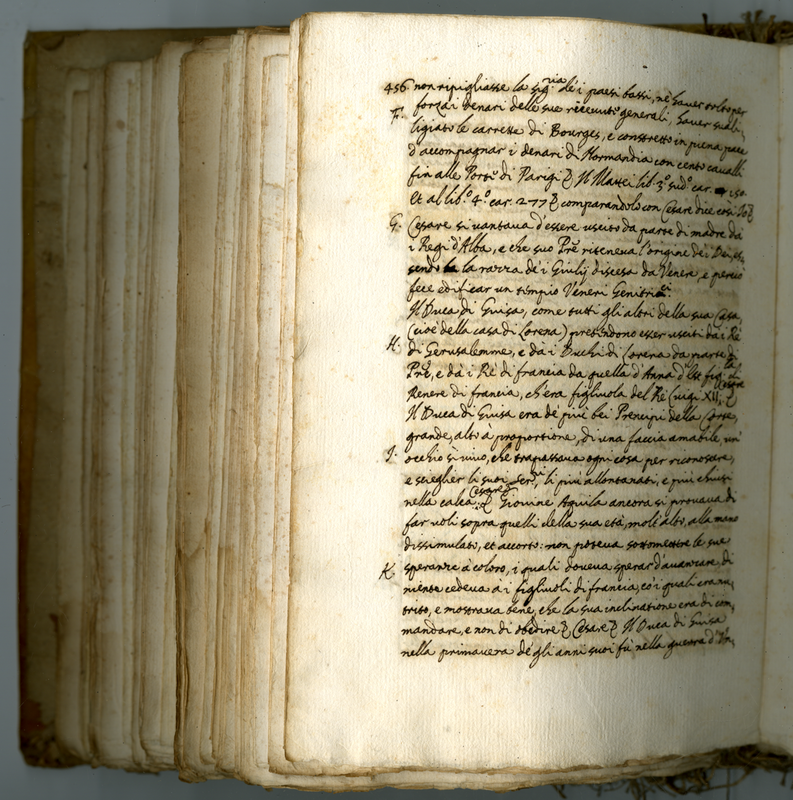 456. non ripigliasse la sig.ria de i paesi bassi, nè haver tolto per
F. forza i denari delle sue ricevute generali, haver suali,
ligiato le carrette di Bourges, e constretto in piena pace
d'accompagnar i denari di Normandia con cento cavalli
fin alle Porte di Parigi & Il Mattei lib. 3.º sud.º car. 150.
Et al lib.º 4.º car. 277 & comparandolo con Cesare dice così
G. Cesare si vantava d'essere uscito da parte di madre da
i Regi d'Alba, e che suo Prē riteneva l'origine de i Dei, es,
sendo la razza de i Giulij discesa da Venere, e perciò
fece edificar un tempio Veneri Genitrici.
Il Duca di Guisa, come tutti gli altri della sua Casa,
(cioè della casa di Lorena) pretendono esser usciti da i Rè
H. di Gerusalemme, e da i Duchi di Lorena da parte di
Prē, e da i Rè di francia da quella d'Anna d'Este fig.la di
Renere di francia, ch'era figliuola del Rè Luigi XII. &
Il Duca di Guisa era de più bei Prencipi della Corte,
grande, alto à proportione, di una faccia amabile, un'
I. occhio sì vivo, che trapassava ogni cosa per riconoscere,
e sciegler li suoi ser.ri li più allontanati, e più chiusi
nella calca. Cesare & Giovine Aquila ancora si provava di
far voli sopra quelli della sua età, molt'alto, alla mano
dissimulato, et accorto: non poteva sottomettre le sue
K. speranze à coloro, i quali doveva sperar d'avanzare, di
niente cedeva à i figliuoli di francia, cò i quali era nu,
trito, e mostrava bene, che la sua inclinatione era di com,
mandare, e non di obedire & Cesare & Il Duca di Guisa
nella primavera de gli anni suoi fù nella guerra d'Un,